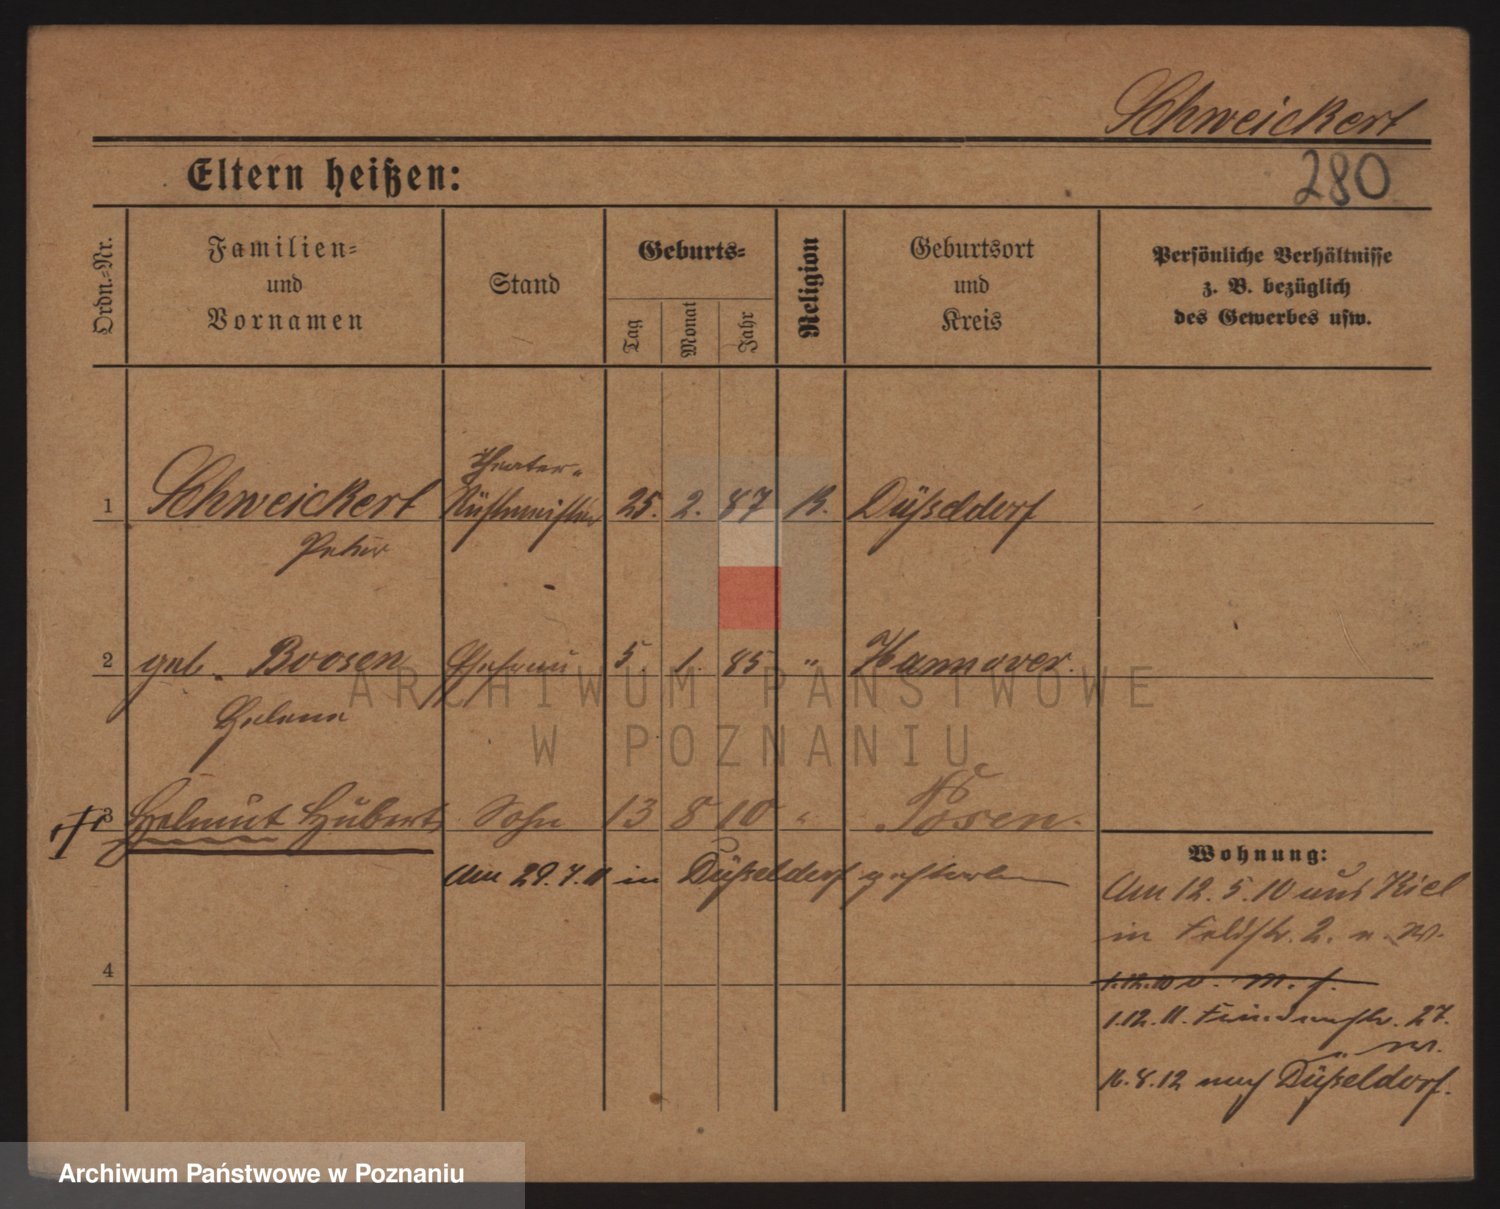 Schweickert
280
Eltern heißen:
Ordn.-Nr.
Familien-
und
Vornamen
Stand
Geburts-
Tag
Monat
Jahr
Religion
Geburtsort
und
Kreis
Persönliche Verhältnisse
z. B. bezüglich
des Gewerbes usw.
Theater-
1 Schweickert Rüstmeister 25. 2. 87 K. Düßeldorf
Peter
2 geb. Boosen Ehefrau 5. 1. 85 " Hannover.
Helene
3 Helmut Hubert Sohn 13 8 10 " Posen.
Am 29.7.11 in Düßeldorf gestorben
4
Wohnung:
Am 12.5.10 aus Kiel
in Feldstr. 2. v. W.
1.12.10 v. M. f.
1.12.11. 27.
W.
16.8.12 nach Düßeldorf.
ARCHIWUM PAŃSTWOWE
W POZNANIU
Archiwum Państwowe w Poznaniu